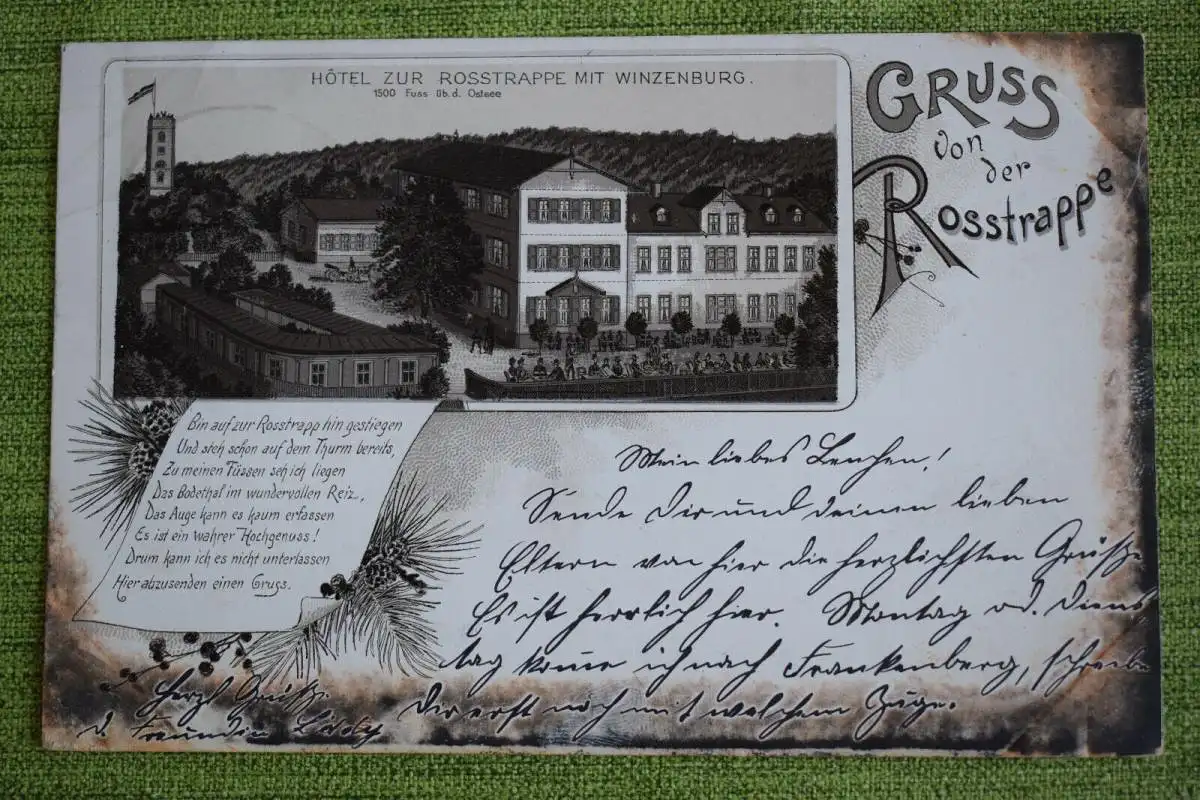 HÔTEL ZUR ROSSTRAPPE MIT WINZENBURG.
1500 Fuss üb. d. Ostsee
GRUSS
von
der
Rosstrappe
Bin auf zur Rosstrapp hin gestiegen
Und steh schon auf dem Thurm bereits,
Zu meinen Füssen seh ich liegen
Das Bodethal im wundervollen Reiz,
Das Auge kann es kaum erfassen
Es ist ein wahrer Hochgenuss!
Drum kann ich es nicht unterlassen
Hier abzusenden einen Gruss.
Mein liebes Lenchen!
Sende Dir und deinen lieben
Eltern von hier die herzlichsten Grüße
Es ist herrlich hier. Montag od. Diens
tag komme ich nach Frankenberg, schreibe
Dir erst noch mit welchem Zuge.
Herzl Grüße
d. Freundin